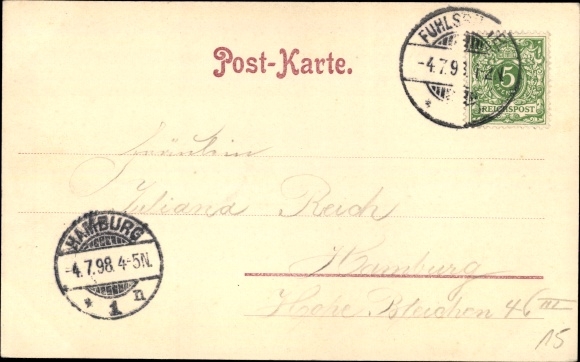 Post-Karte.
FUHLSBÜTTEL
-4.7.98
5
REICHSPOST
Fräulein
Juliana Reich
Hamburg
Hohe Bleichen 46 III
HAMBURG
-4.7.98. 4-5N.
* 1 n
15